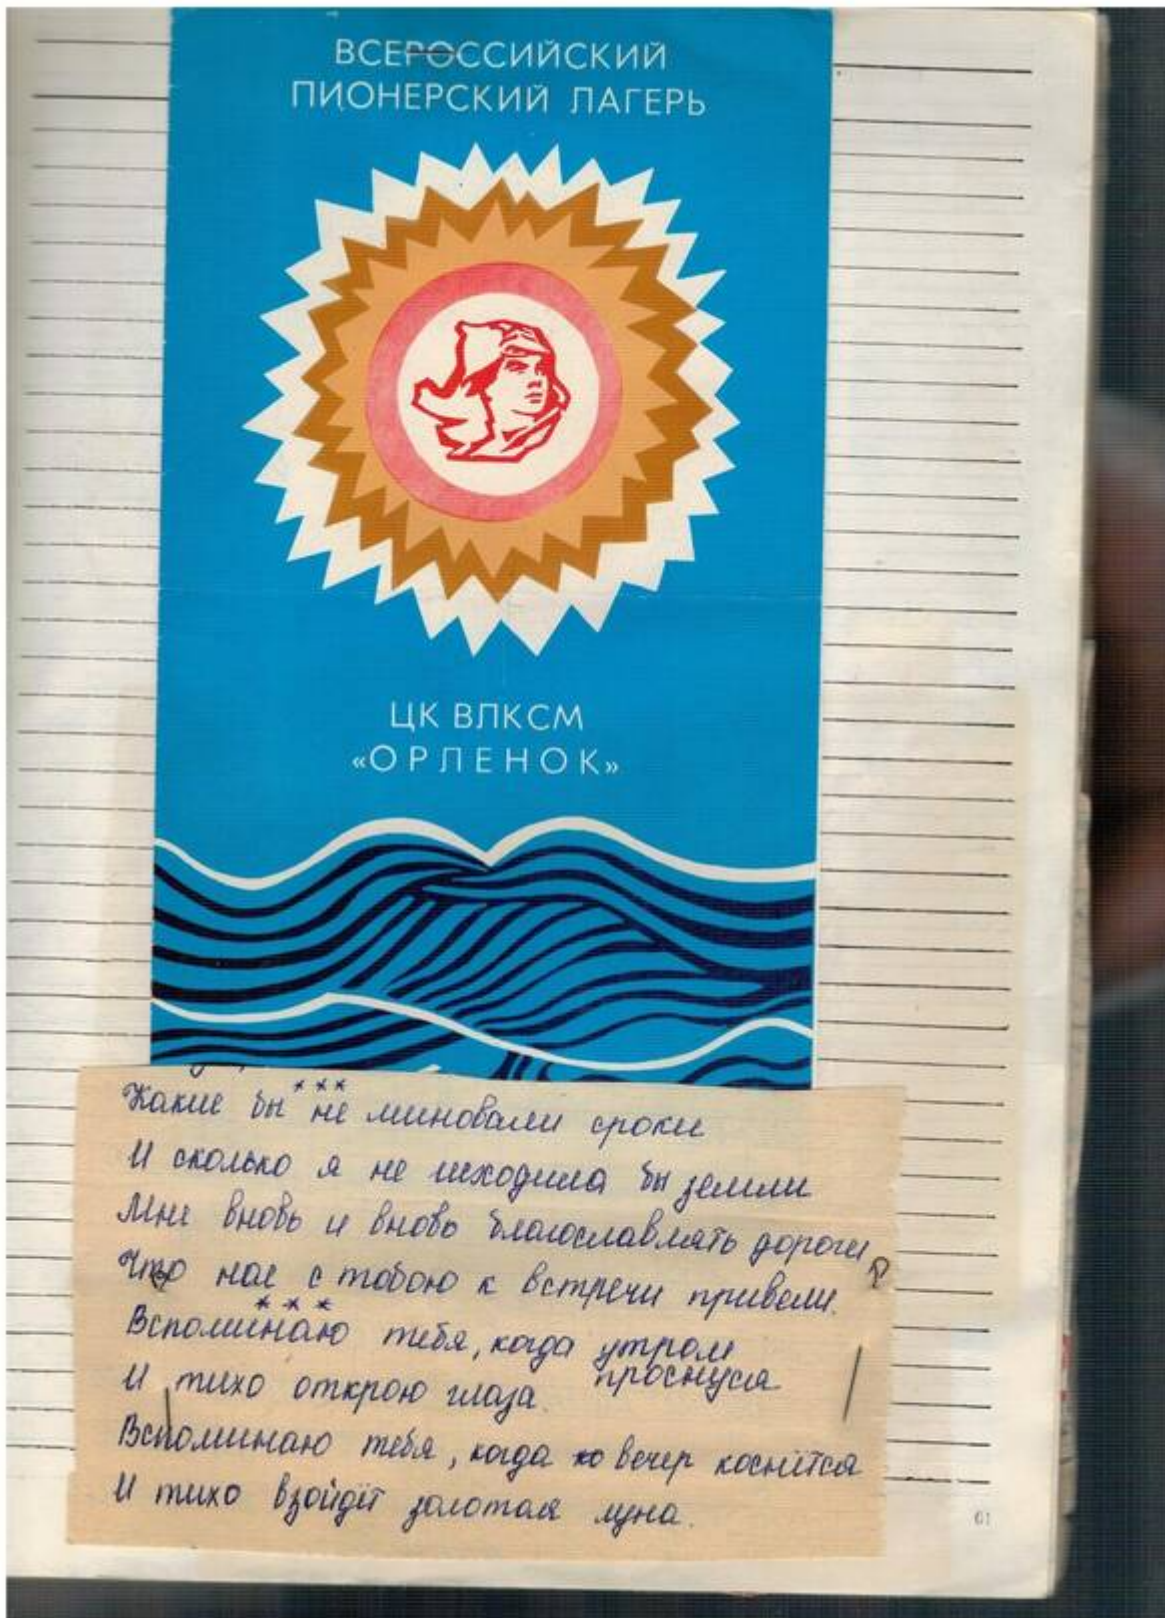 ВСЕРОССИЙСКИЙ
ПИОНЕРСКИЙ ЛАГЕРЬ
ЦК ВЛКСМ
«ОРЛЕНОК»
* * *
Какие бы не миновали сроки
И сколько я не исходила бы земли
Мне вновь и вновь благославлять дороги
Что нас с тобою к встречи привели.
* * *
Вспоминаю тебя, когда утром
проснуся
И тихо открою глаза.
Вспоминаю тебя, когда вечер коснётся
И тихо взойдёт золотая луна.
61